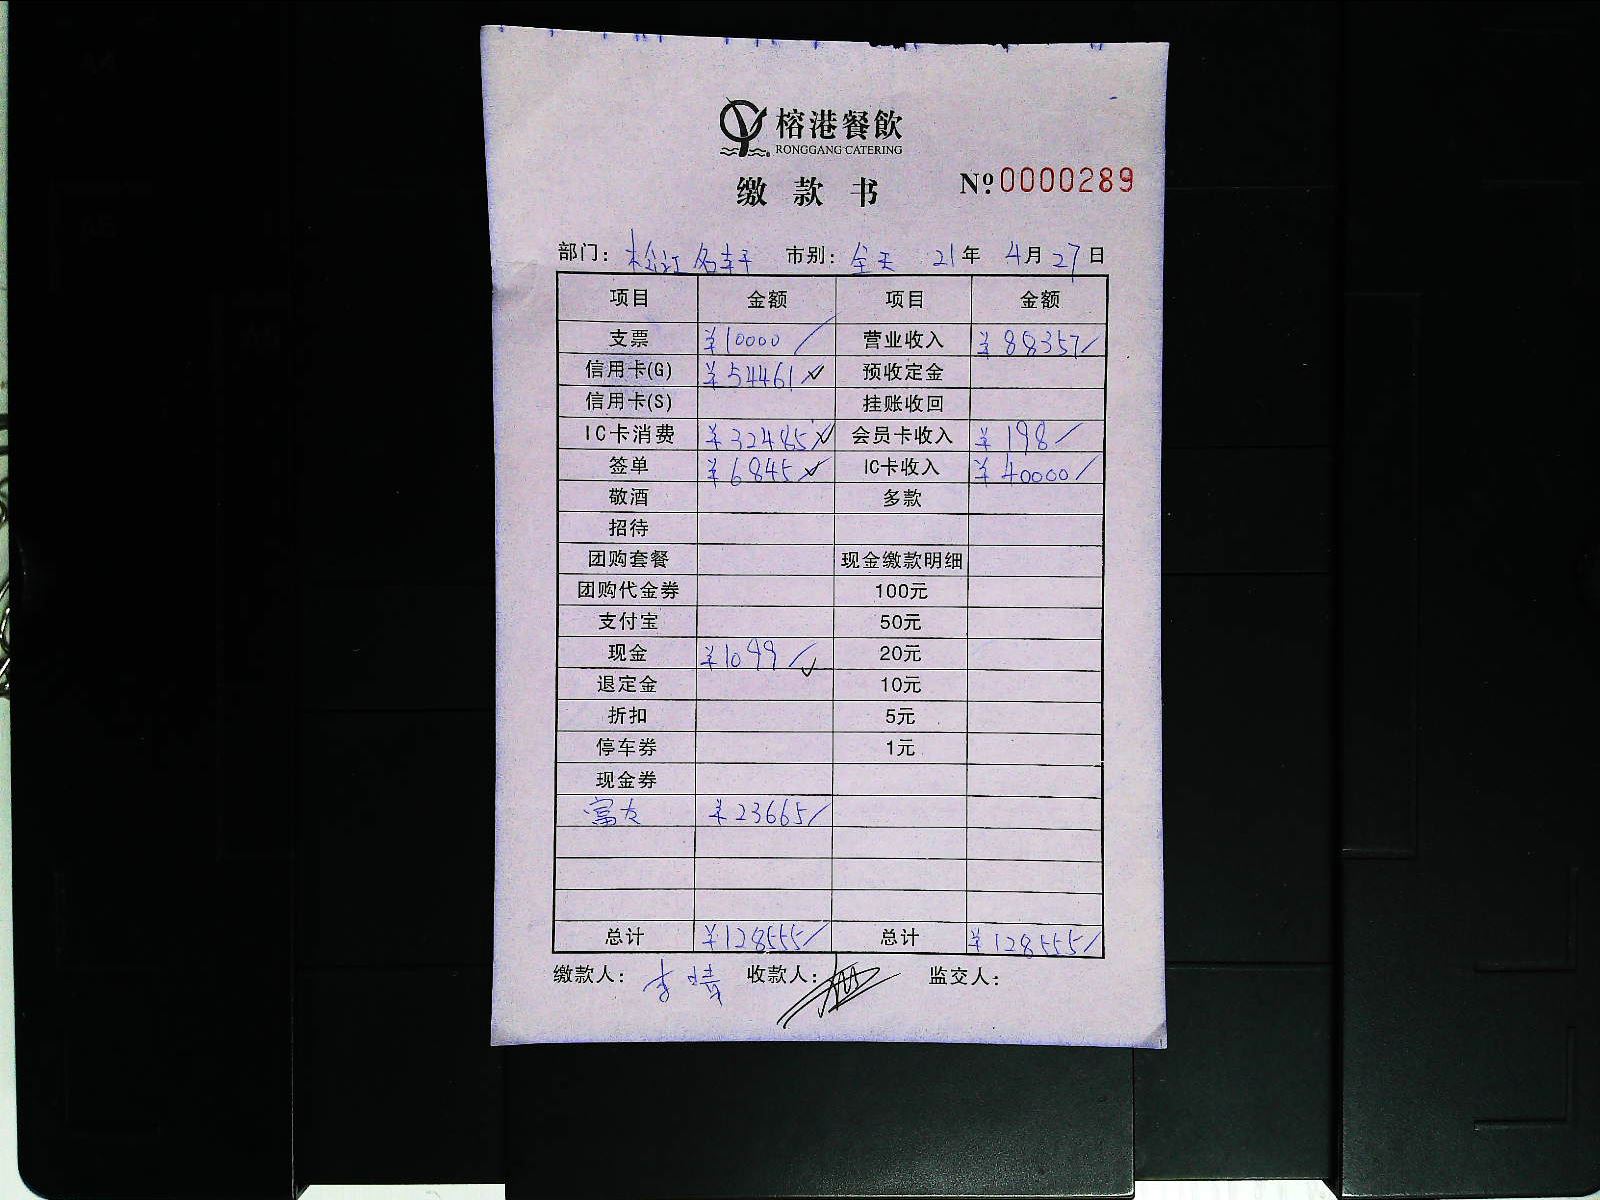 榕港餐飲
RONGGANG CATERING
缴款书 №0000289
部门: 松江名轩 市别: 全天 21年 4月27日
项目 金额 项目 金额
支票 ¥10000 营业收入 ¥88357
信用卡(G) ¥54461 预收定金
信用卡(S) 挂账收回
IC卡消费 ¥32485 会员卡收入 ¥198
签单 ¥6845 IC卡收入 ¥40000
敬酒 多款
招待
团购套餐 现金缴款明细
团购代金券 100元
支付宝 50元
现金 ¥1099 20元
退定金 10元
折扣 5元
停车券 1元
现金券
富友 ¥23665
总计 ¥128555 总计 ¥128555
缴款人: 李 收款人: 监交人: